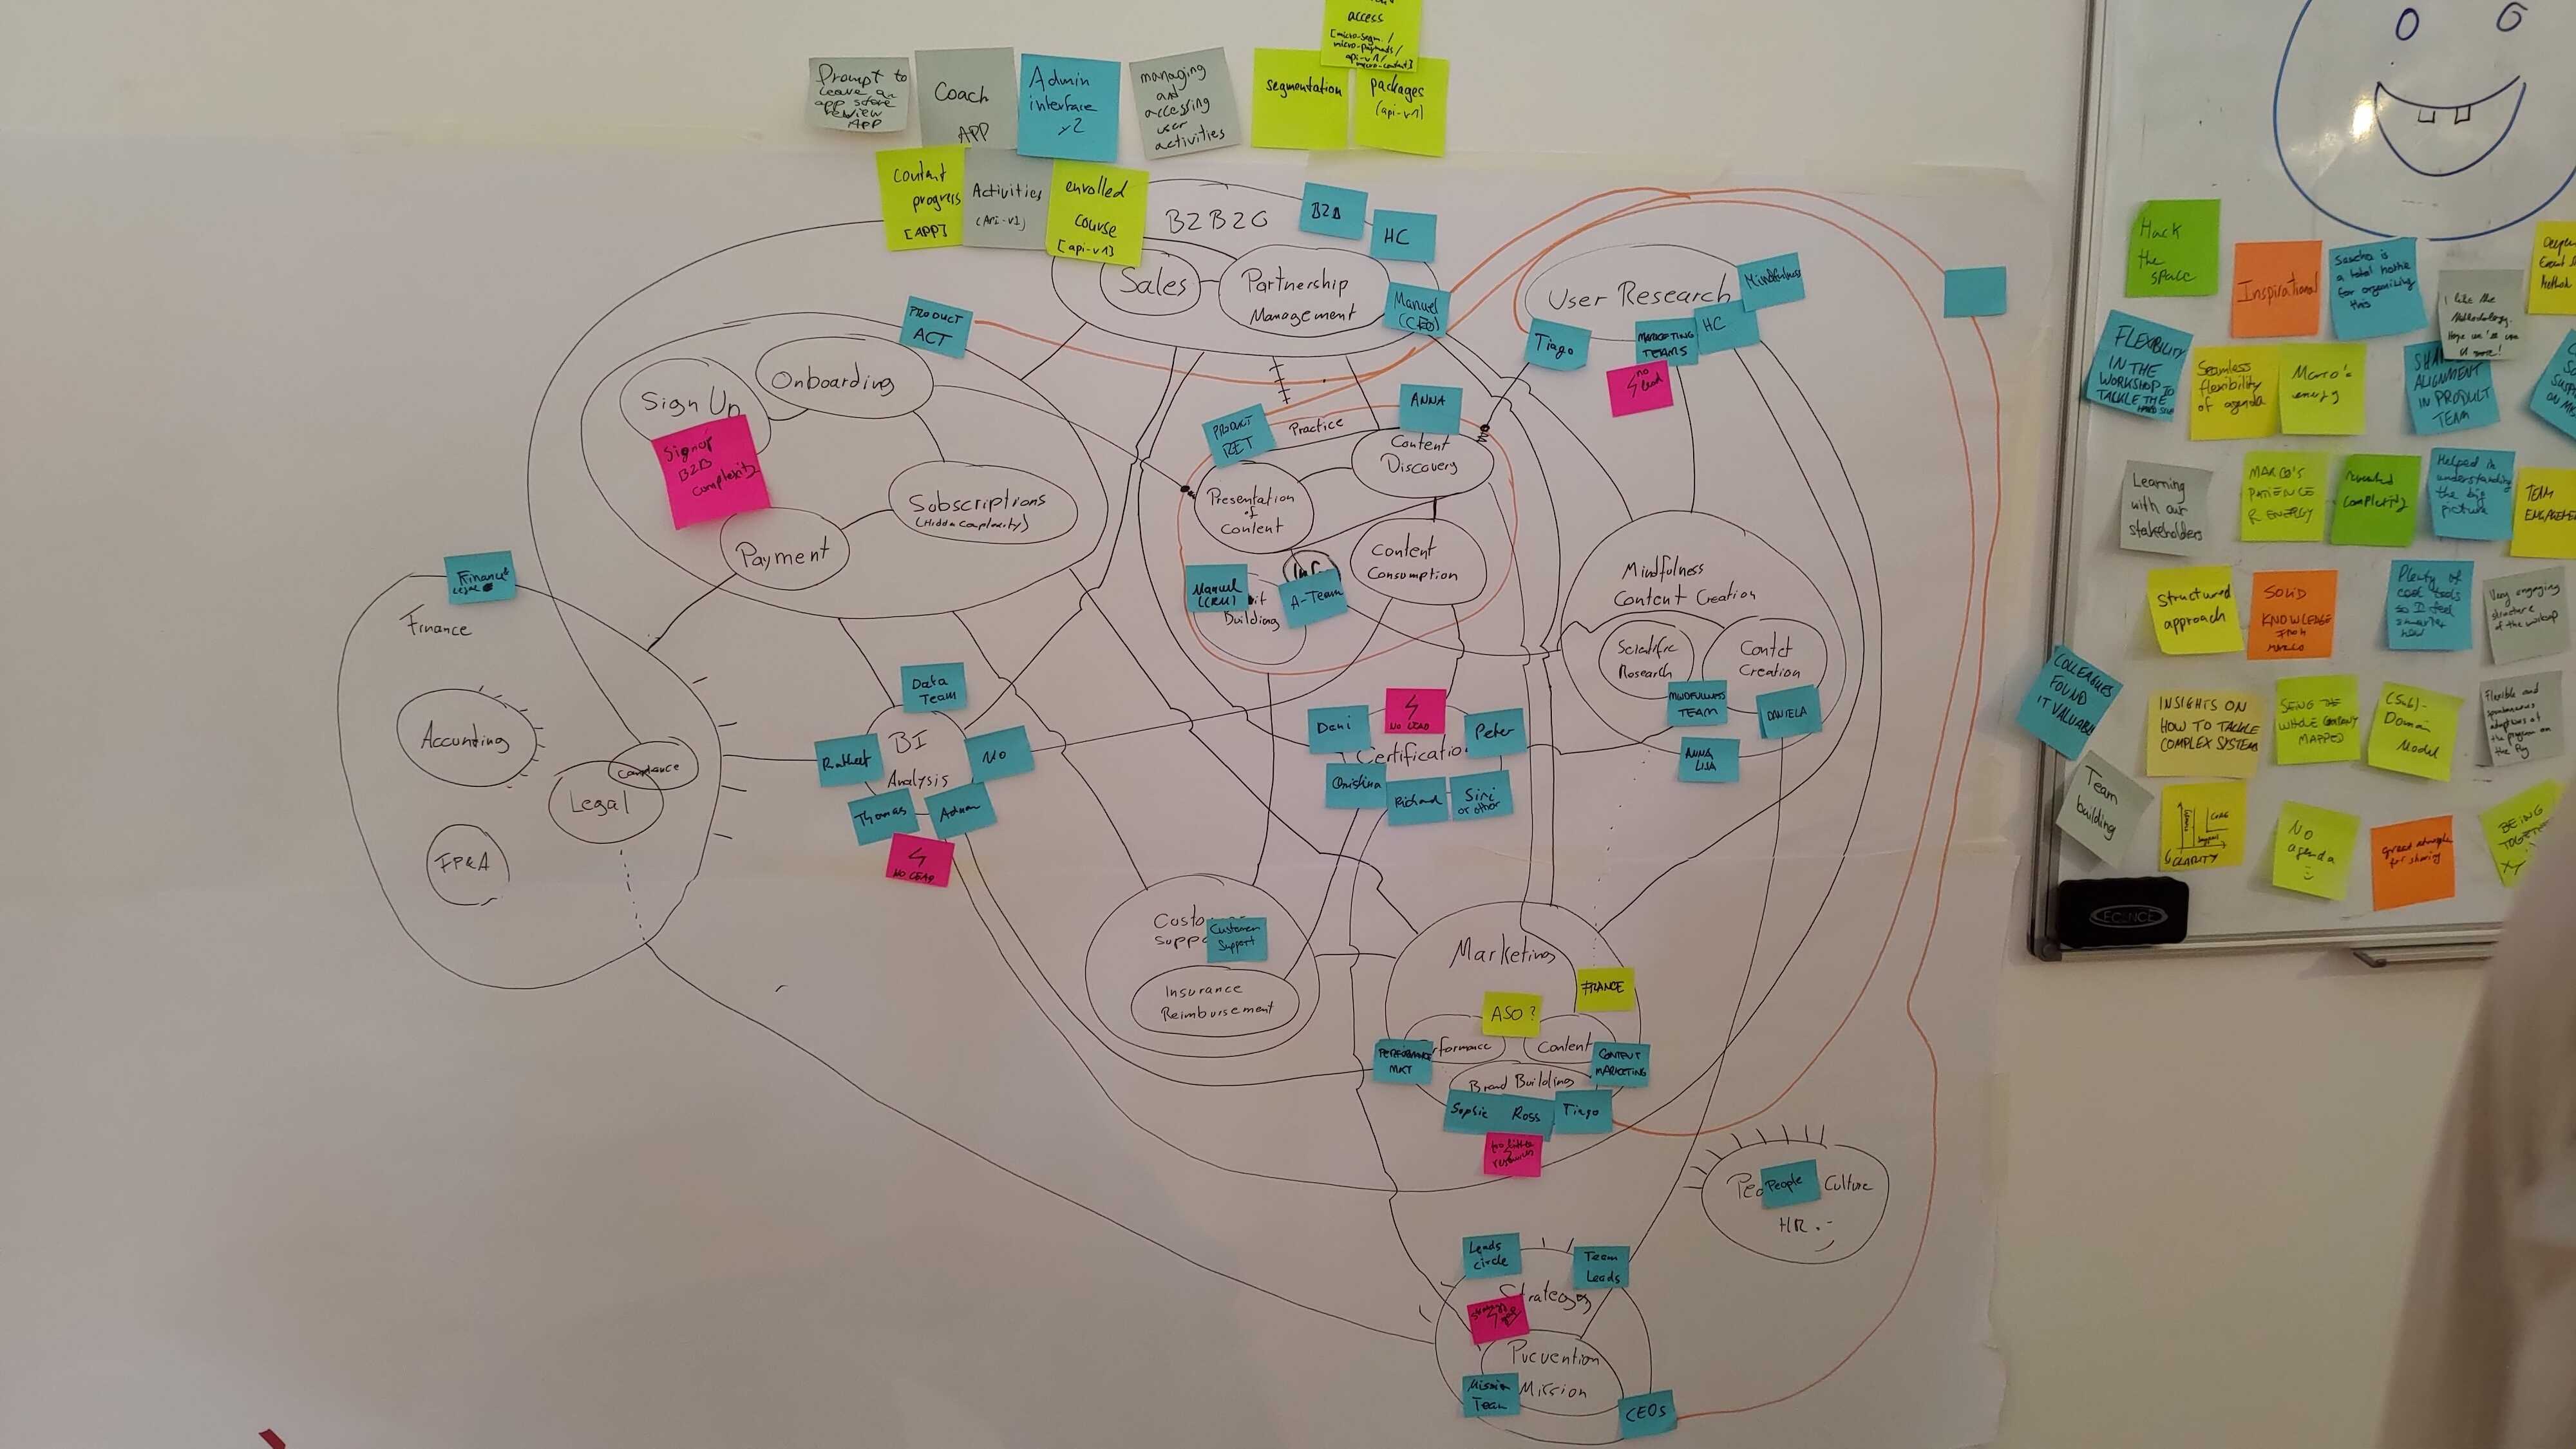 access
[micro-segm. /
micro-payments /
api-v1/
micro-content]
Prompt to
leave an
app store
review
APP
Coach
APP
Admin
interface
v2
managing
and
accessing
user
activities
segmentation
packages
(api-v1)
Content
progress
[APP]
Activities
(Api-v1)
enrolled
course
[api-v1]
B2B2C
HC
Sales
Partnership
Management
Manuel
(CEO)
User Research
Mindfulness
HC
MARKETING
TEAMS
Tiago
no
lead
PRODUCT
ACT
Sign Up
Onboarding
Signup
B2B
complexity
Subscriptions
(Hidden Complexity)
Payment
PRODUCT
RET
Practice
ANNA
Content
Discovery
Presentation
of
Content
Content
Consumption
Manuel
(CRM)
A-Team
Building
Mindfulness
Content Creation
Scientific
Research
Creation
MINDFULNESS
TEAM
DANIELA
ANNA
LISA
Finance
Finance
Accounting
Legal
FP&A
Data
Team
BI
Analysis
NO
Thomas
NO LEAD
Deni
NO LEAD
Peter
Christina
Richard
Siri
or other
Customer
Support
Insurance
Reimbursement
Marketing
FRANCE
ASO?
PERFORMANCE
MKT
Content
CONTENT
MARKETING
Brand Building
Sophie
Ross
Tiago
too little
resources
People
Culture
HR :-)
Leads
circle
Team
Leads
Strategy
Mission
Mission
Team
CEOs
Hack
the
space
Inspirational
Sascha is
a total hottie
for organizing
this
I like the
methodology.
FLEXIBILITY
IN THE
WORKSHOP TO
TACKLE THE
Seamless
flexibility
of agenda
Marco's
energy
ALIGNMENT
IN PRODUCT
TEAM
Learning
with our
stakeholders
MARCO'S
PATIENCE
& ENERGY
revealed
complexity
Helped in
understanding
the big
picture
TEAM
structured
approach
SOLID
KNOWLEDGE
FROM
MARCO
Plenty of
cool tools
so I feel
smarter
now
Very engaging
structure
of the workshop
COLLEAGUES
FOUND
IT VALUABLE
INSIGHTS ON
HOW TO TACKLE
COMPLEX SYSTEMS
SEING THE
WHOLE COMPANY
MAPPED
(Sub)-
Domain
Model
Flexible and
spontaneous
adaptions of
the program on
the fly
Team
building
CLARITY
No
agenda
:)
for sharing
BEING